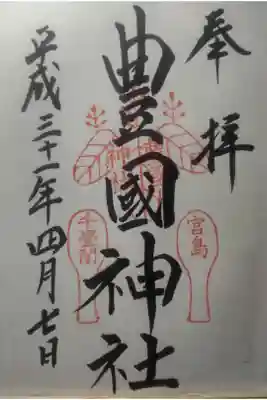 奉拝
豊國神社
平成三十一年四月七日
宮島
千畳閣